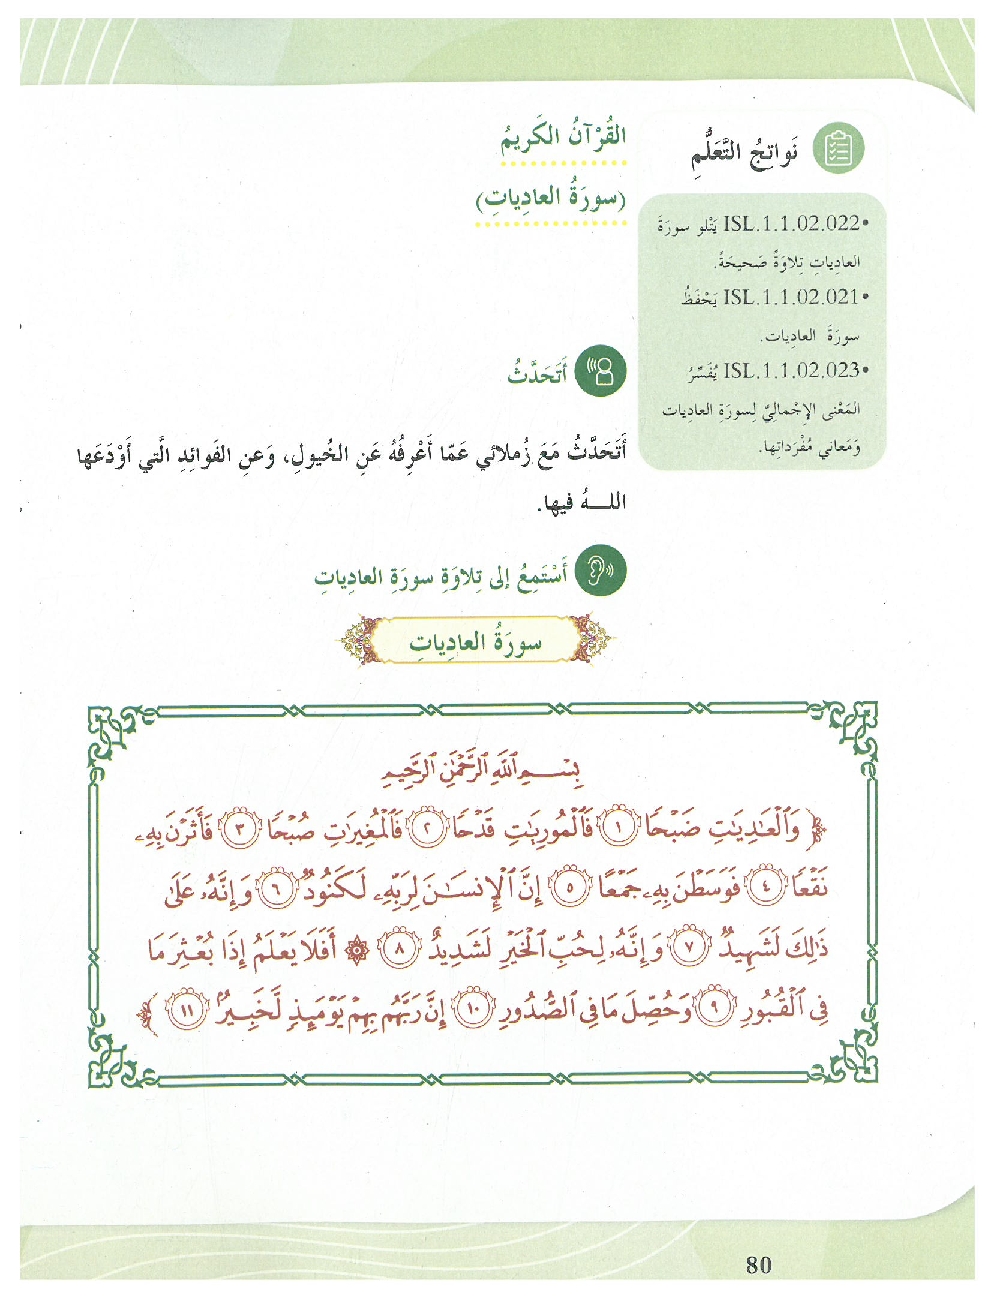 نَواتِجُ التَّعَلُّمِ
•ISL.1.1.02.022 يَتْلو سورَةَ
العادِياتِ تِلاوَةً صَحيحَةً.
•ISL.1.1.02.021 يَحْفَظُ
سورَةَ العادِيات.
•ISL.1.1.02.023 يُفَسِّرُ
المَعْنى الإِجْماليَّ لِسورَةِ العادِيات
وَمَعاني مُفْرَداتِها.
القُرْآنُ الكَريمُ
(سورَةُ العادِياتِ)
أَتَحَدَّثُ
أَتَحَدَّثُ مَعَ زُملائي عَمّا أَعْرِفُهُ عَنِ الخُيولِ، وَعنِ الفَوائِدِ الَّتي أَوْدَعَها
اللـهُ فيها.
أَسْتَمِعُ إلى تِلاوَةِ سورَةِ العادِياتِ
سورَةُ العادِياتِ
بِسْمِ ٱللَّهِ ٱلرَّحْمَٰنِ ٱلرَّحِيمِ
﴿ وَٱلْعَٰدِيَٰتِ ضَبْحًا ١ فَٱلْمُورِيَٰتِ قَدْحًا ٢ فَٱلْمُغِيرَٰتِ صُبْحًا ٣ فَأَثَرْنَ بِهِۦ
نَقْعًا ٤ فَوَسَطْنَ بِهِۦ جَمْعًا ٥ إِنَّ ٱلْإِنسَٰنَ لِرَبِّهِۦ لَكَنُودٌ ٦ وَإِنَّهُۥ عَلَىٰ
ذَٰلِكَ لَشَهِيدٌ ٧ وَإِنَّهُۥ لِحُبِّ ٱلْخَيْرِ لَشَدِيدٌ ٨ ۞ أَفَلَا يَعْلَمُ إِذَا بُعْثِرَ مَا
فِي ٱلْقُبُورِ ٩ وَحُصِّلَ مَا فِي ٱلصُّدُورِ ١٠ إِنَّ رَبَّهُم بِهِمْ يَوْمَئِذٍ لَّخَبِيرٌۢ ١١ ﴾
80